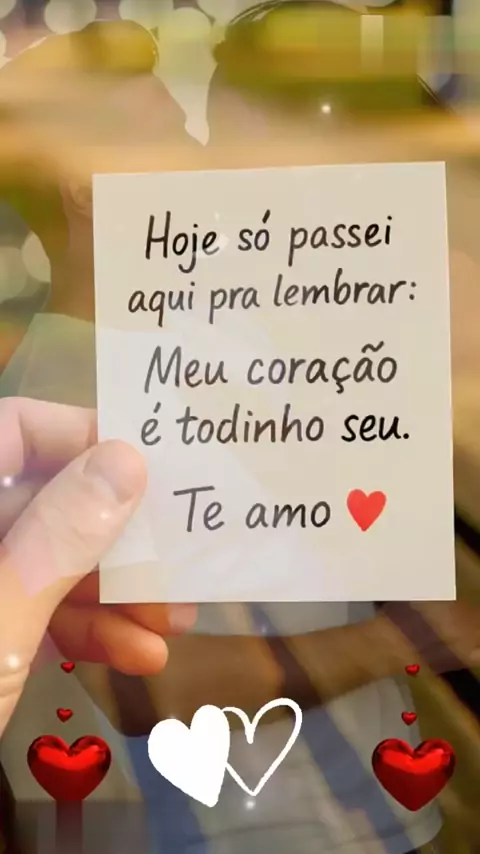 Hoje só passei
aqui pra lembrar:
Meu coração
é todinho seu.
Te amo ❤